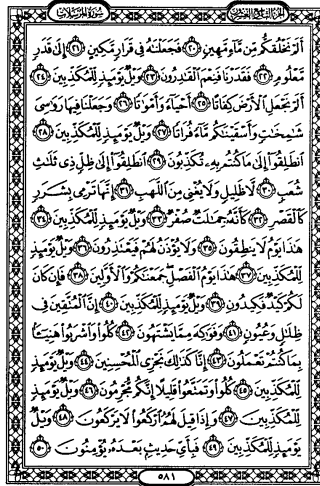 الجزء التاسع والعشرون سورة المرسلات
ألم نخلقكم من ماء مهين ٢٠ فجعلناه في قرار مكين ٢١ إلى قدر
معلوم ٢٢ فقدرنا فنعم القادرون ٢٣ ويل يومئذ للمكذبين ٢٤
ألم نجعل الأرض كفاتا ٢٥ أحياء وأمواتا ٢٦ وجعلنا فيها رواسي
شامخات وأسقيناكم ماء فراتا ٢٧ ويل يومئذ للمكذبين ٢٨
انطلقوا إلى ما كنتم به تكذبون ٢٩ انطلقوا إلى ظل ذي ثلاث
شعب ٣٠ لا ظليل ولا يغني من اللهب ٣١ إنها ترمي بشرر
كالقصر ٣٢ كأنه جمالت صفر ٣٣ ويل يومئذ للمكذبين ٣٤
هذا يوم لا ينطقون ٣٥ ولا يؤذن لهم فيعتذرون ٣٦ ويل يومئذ
للمكذبين ٣٧ هذا يوم الفصل جمعناكم والأولين ٣٨ فإن كان
لكم كيد فكيدون ٣٩ ويل يومئذ للمكذبين ٤٠ إن المتقين في
ظلال وعيون ٤١ وفواكه مما يشتهون ٤٢ كلوا واشربوا هنيئا
بما كنتم تعملون ٤٣ إنا كذلك نجزي المحسنين ٤٤ ويل يومئذ
للمكذبين ٤٥ كلوا وتمتعوا قليلا إنكم مجرمون ٤٦ ويل يومئذ
للمكذبين ٤٧ وإذا قيل لهم اركعوا لا يركعون ٤٨ ويل
يومئذ للمكذبين ٤٩ فبأي حديث بعده يؤمنون ٥٠
٥٨١